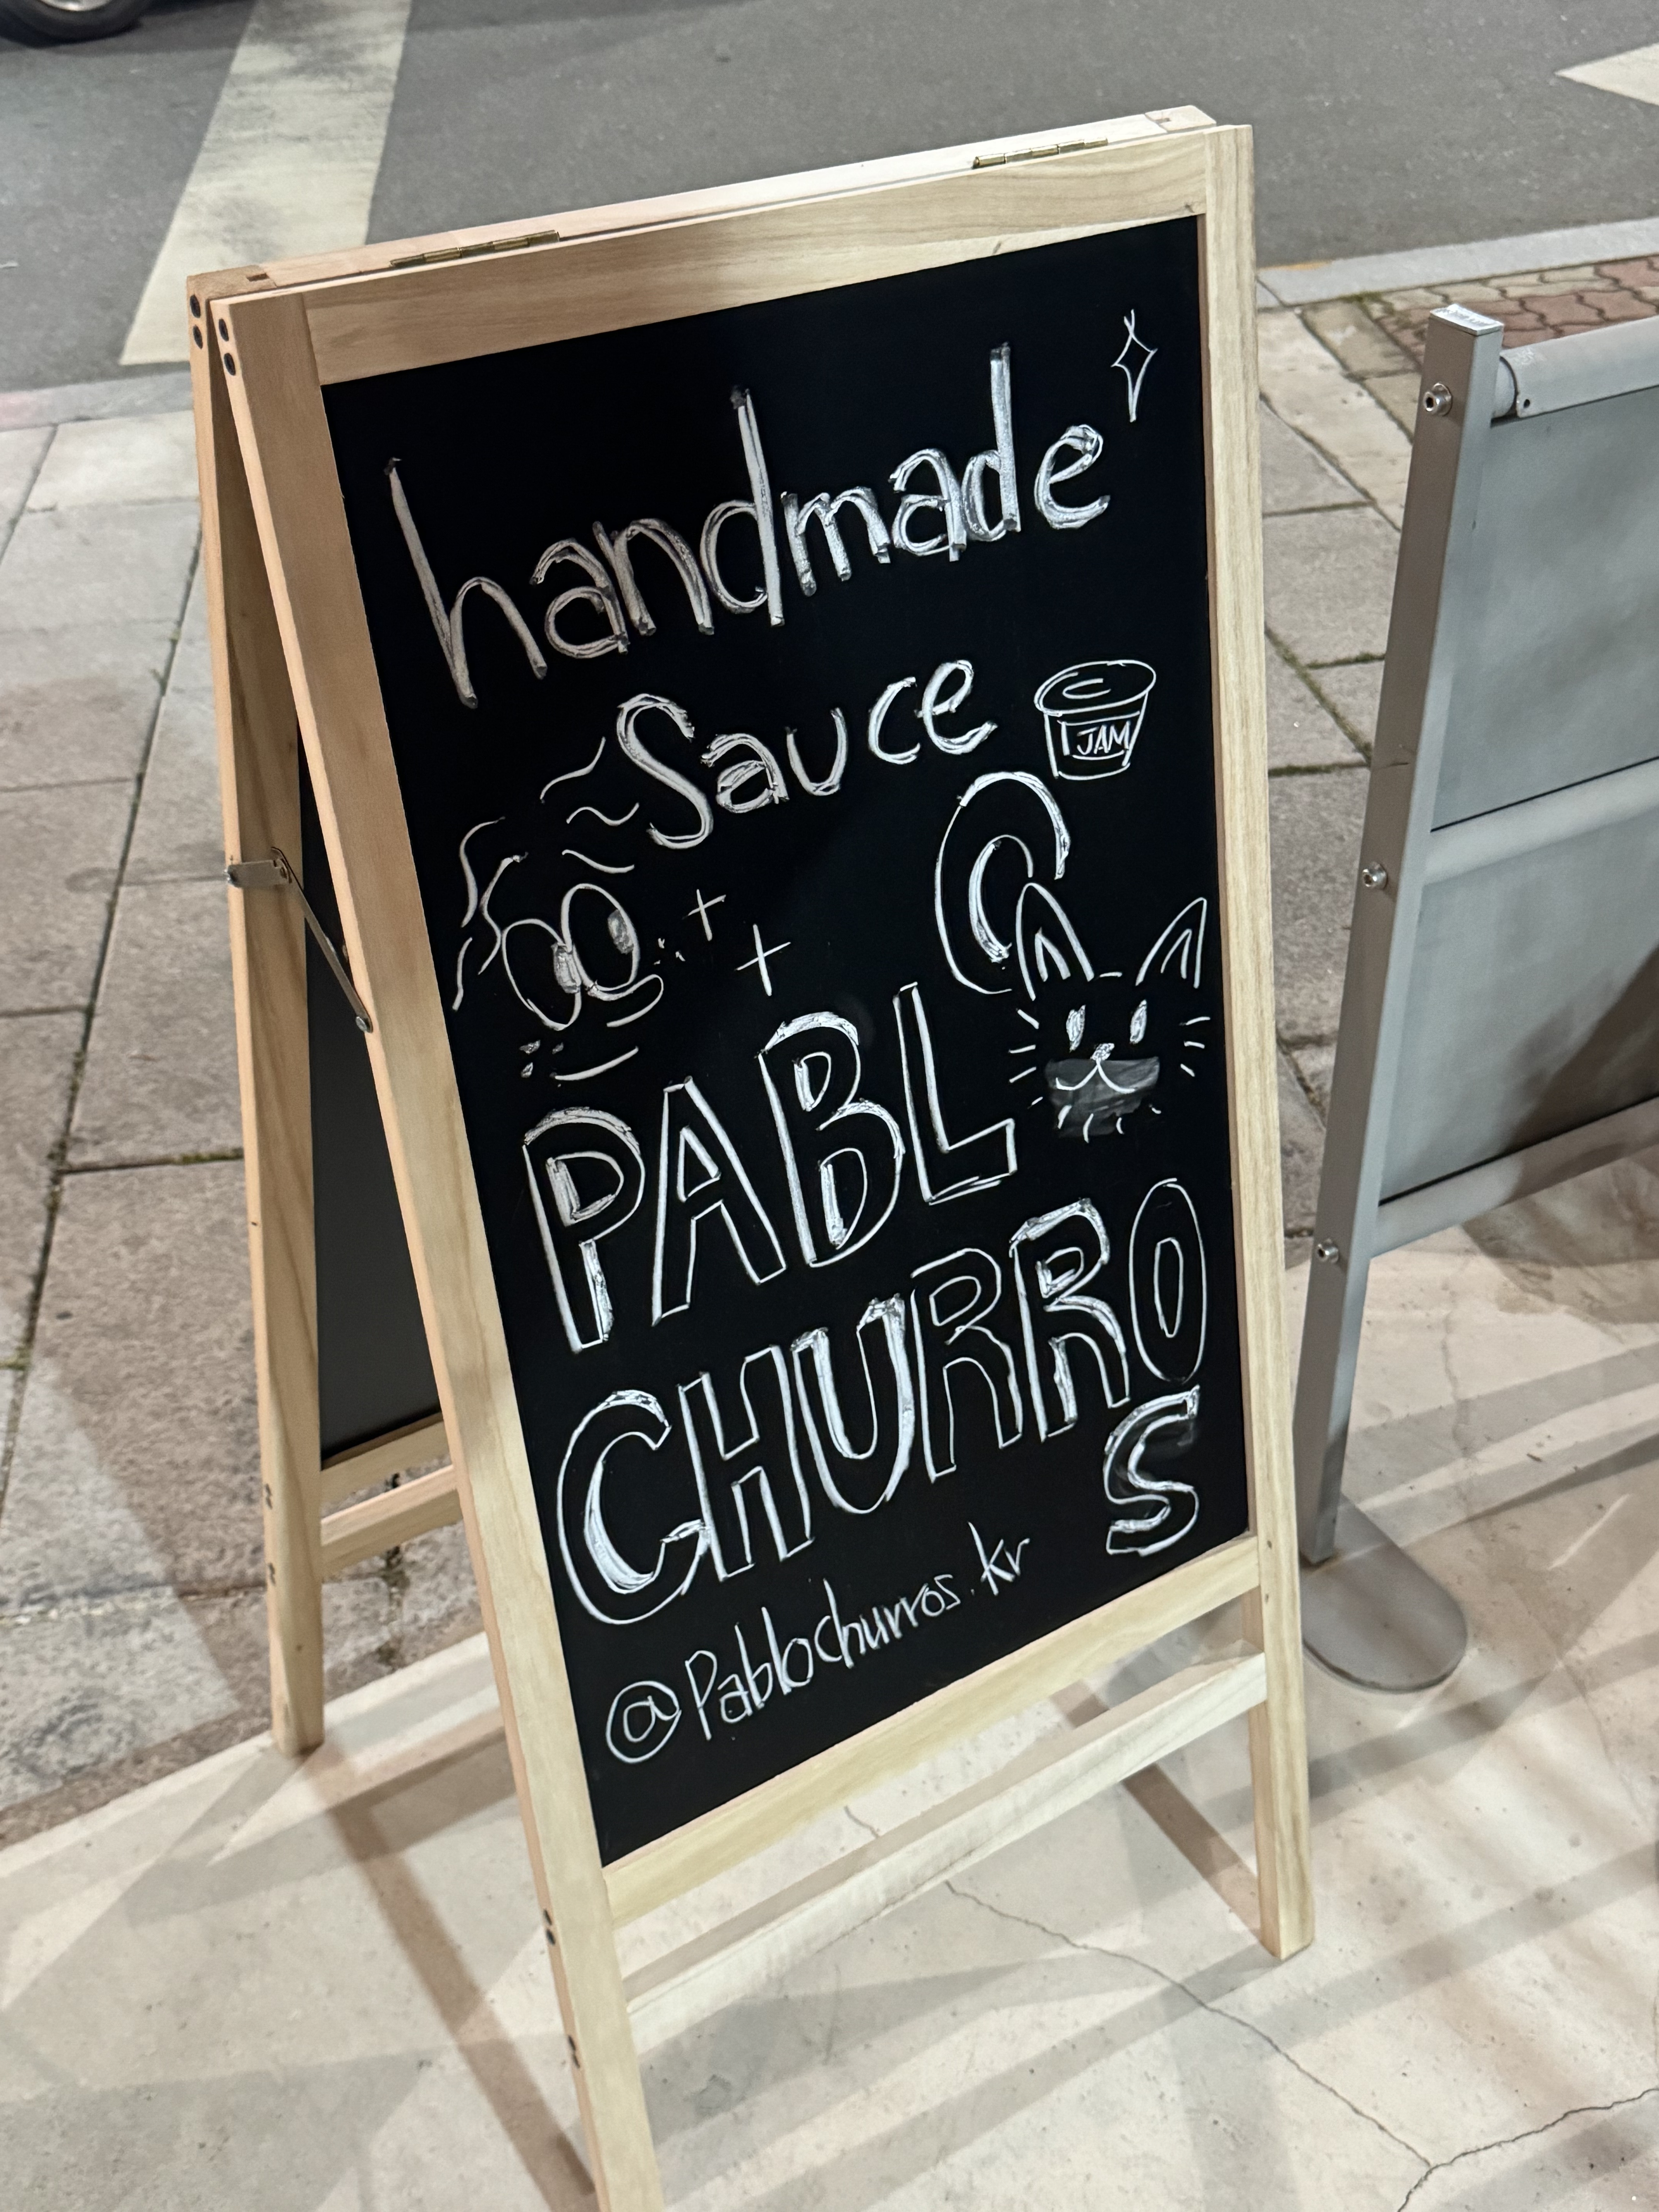 handmade
Sauce
JAM
PABLO
CHURROS
@Pablochurros.kr